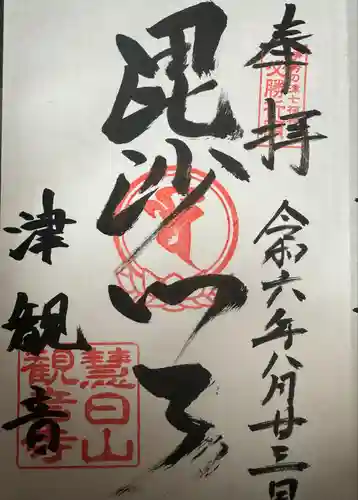 奉拝
令和六年八月廿三日
毘沙门天
津観音
慧日山
観音寺